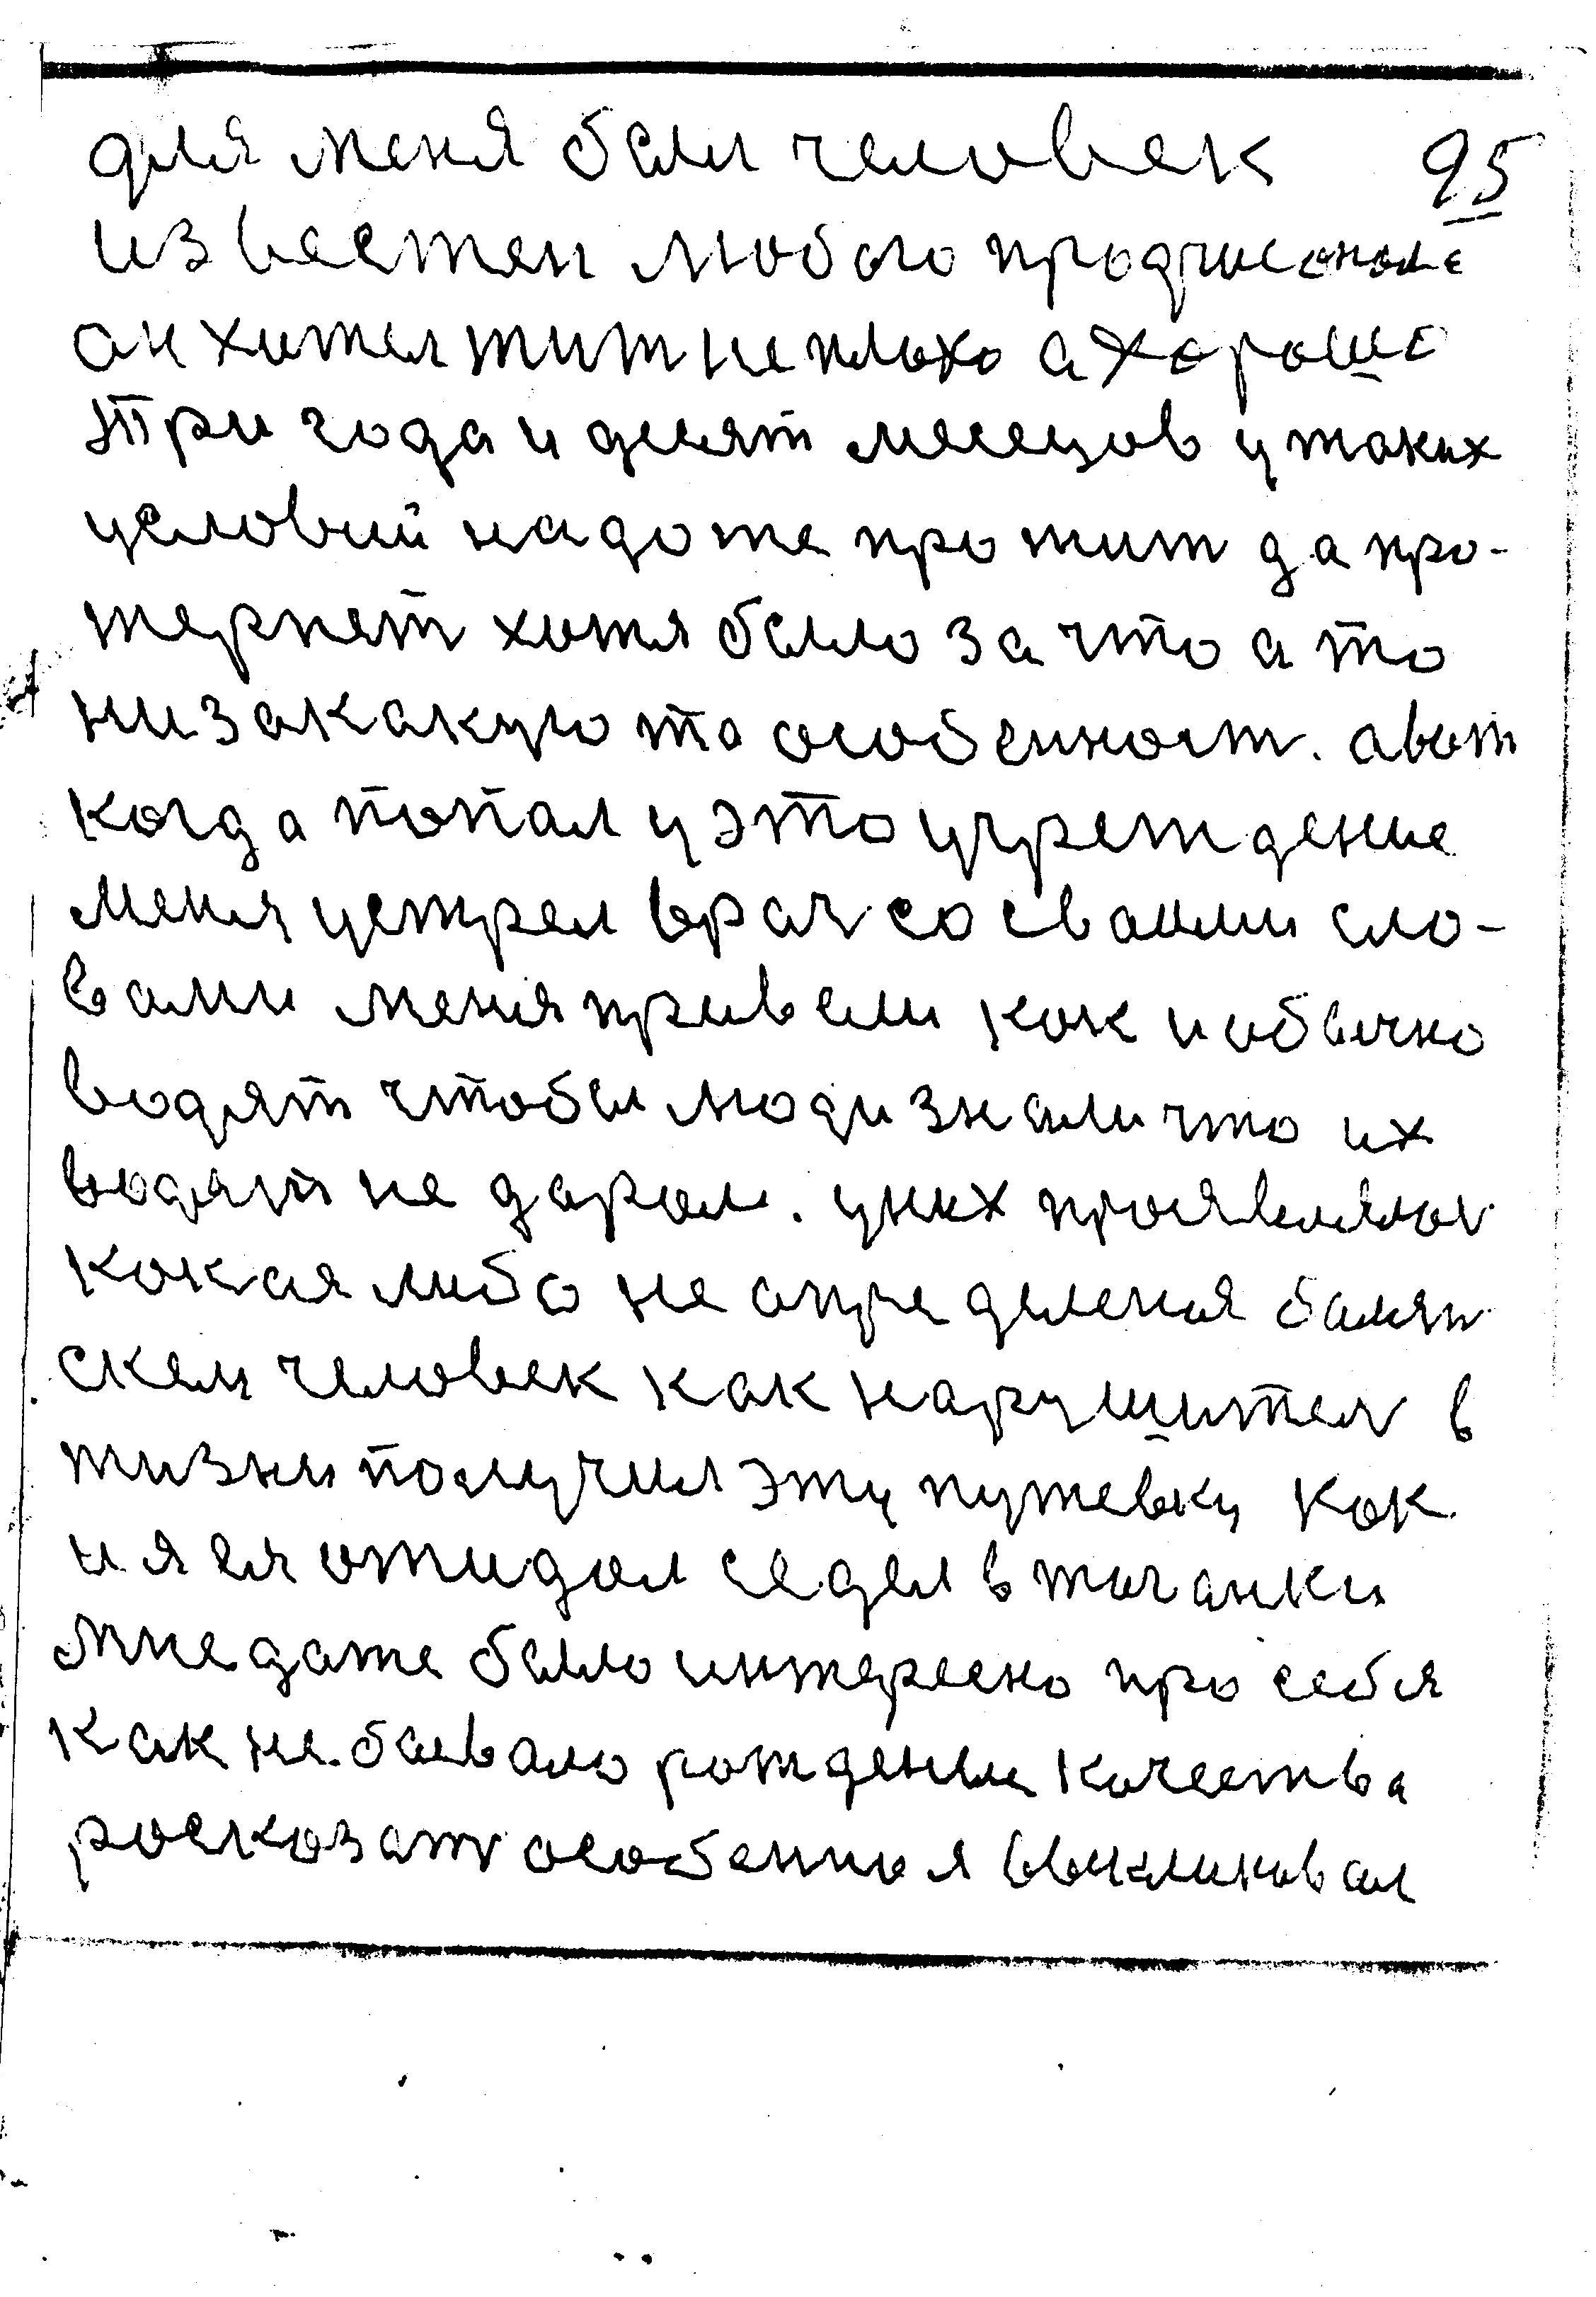 для меня был человек 95
известен любого
он хител жит не плохо а хорошо
три года и девят месецов у таких
условий надо же прожит да про-
терпет хотя было за что а то
ни за какую то особенност. а вот
когда попал у это учреждение
меня устрел врач со сваими сло-
вами меня привели как и обычно
водят чтобы люди знали что их
водят не даром. у них проявлялас
кокая либо не определеная
скем человек как нарушител в
жизни получил эту путевку как
и я ея ожидал седел в таганки
мне даже было интересно про себя
как не бывало рождение качества
росказат особенно я